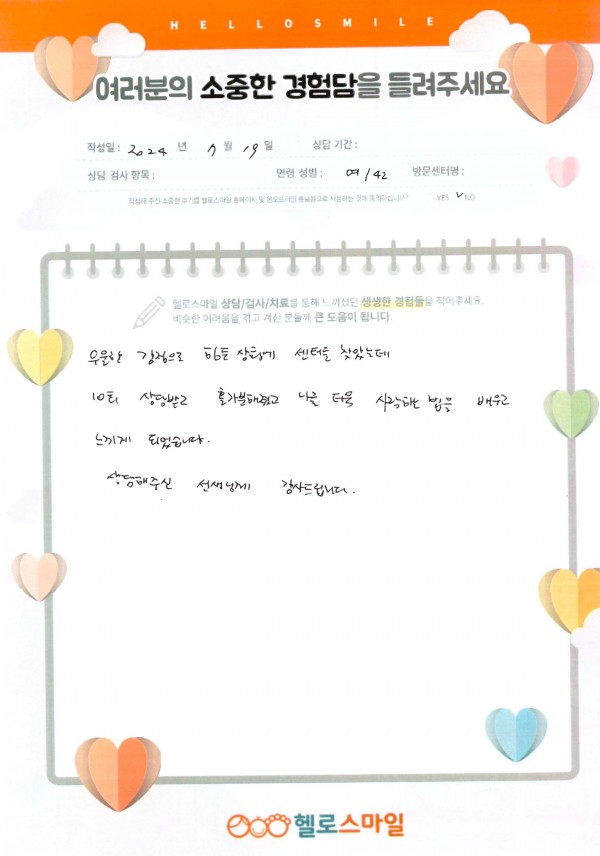 HELLOSMILE
여러분의 소중한 경험담을 들려주세요
작성일 : 2024 년 9 월 19 일 상담 기간 :
상담 검사 항목 : 연령 성별 : 여/42 방문센터명 :
작성해 주신 소중한 후기를 헬로스마일 홈페이지 및 온오프라인 홍보용으로 사용하는 것에 동의하십니까? YES ✓NO
헬로스마일 상담/검사/치료를 통해 느끼셨던 생생한 경험들을 적어주세요.
비슷한 어려움을 겪고 계신 분들께 큰 도움이 됩니다.
우울한 감정으로 힘든 상황에 센터를 찾았는데
10회 상담받고 홀가분해졌고 나를 더욱 사랑하는 법을 배우고
느끼게 되었습니다.
상담해주신 선생님께 감사드립니다.
헬로스마일